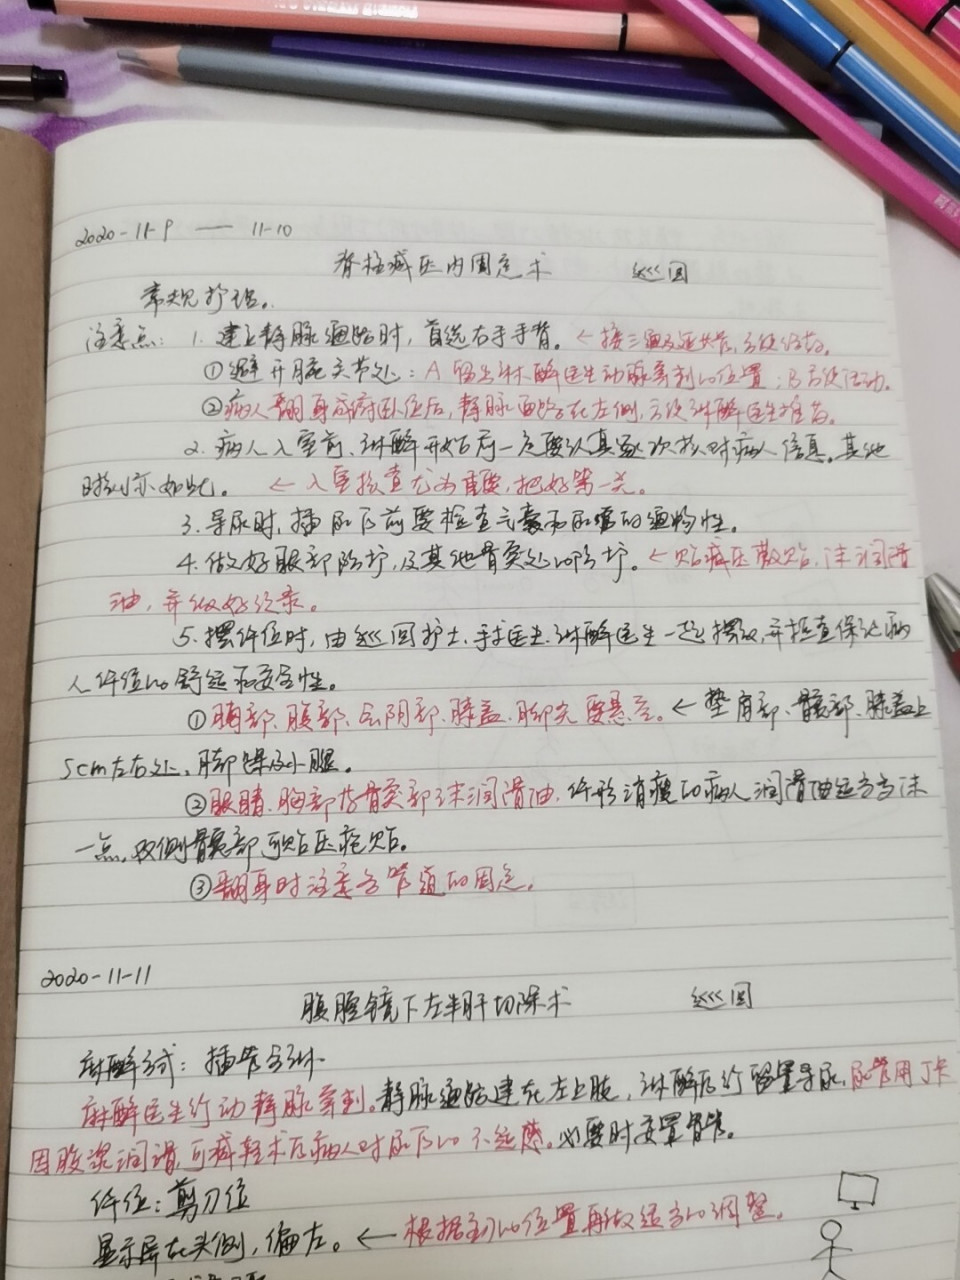 2020-11-9 — 11-10
脊柱减压内固定术 巡回
常规护理。
注意点: 1. 建立静脉通路时，首选右手手背。←接三通及延长管，方便给药。
①避开腕关节处：A留出麻醉医生动脉穿刺的位置；B方便活动。
②病人翻身成俯卧位后，静脉通路在左侧，方便麻醉医生推药。
2. 病人入室前、麻醉开始前一定要认真逐次核对病人信息。其他
时刻亦如此。 ←入室核查尤为重要，把好第一关。
3. 导尿时，插尿管前要检查气囊和尿管的通畅性。
4. 做好眼部防护，及其他骨突处的防护。←贴减压敷贴，涂润滑
油，并做好记录。
5. 摆体位时，由巡回护士、手术医生、麻醉医生一起摆放，并检查保证病
人体位的舒适和安全性。
①胸部、腹部、会阴部、膝盖、脚尖要悬空。←垫肩部、髋部、膝盖上
5cm左右处、脚踝及小腿。
②眼睛、胸部等骨突部涂润滑油，体形消瘦的病人润滑油适当多涂
一点，双侧髋部可贴压疮贴。
③翻身时注意各管道的固定。
2020-11-11
腹腔镜下左半肝切除术 巡回
麻醉方式：插管全麻
麻醉医生行动静脉穿刺。静脉通路建在左上肢，麻醉后行留置导尿，尿管用丁卡
因胶浆润滑，可减轻术后病人对尿管的不适感。必要时安置胃管。
体位：剪刀位
显示屏在头侧，偏左。←根据主刀的位置再做适当的调整。